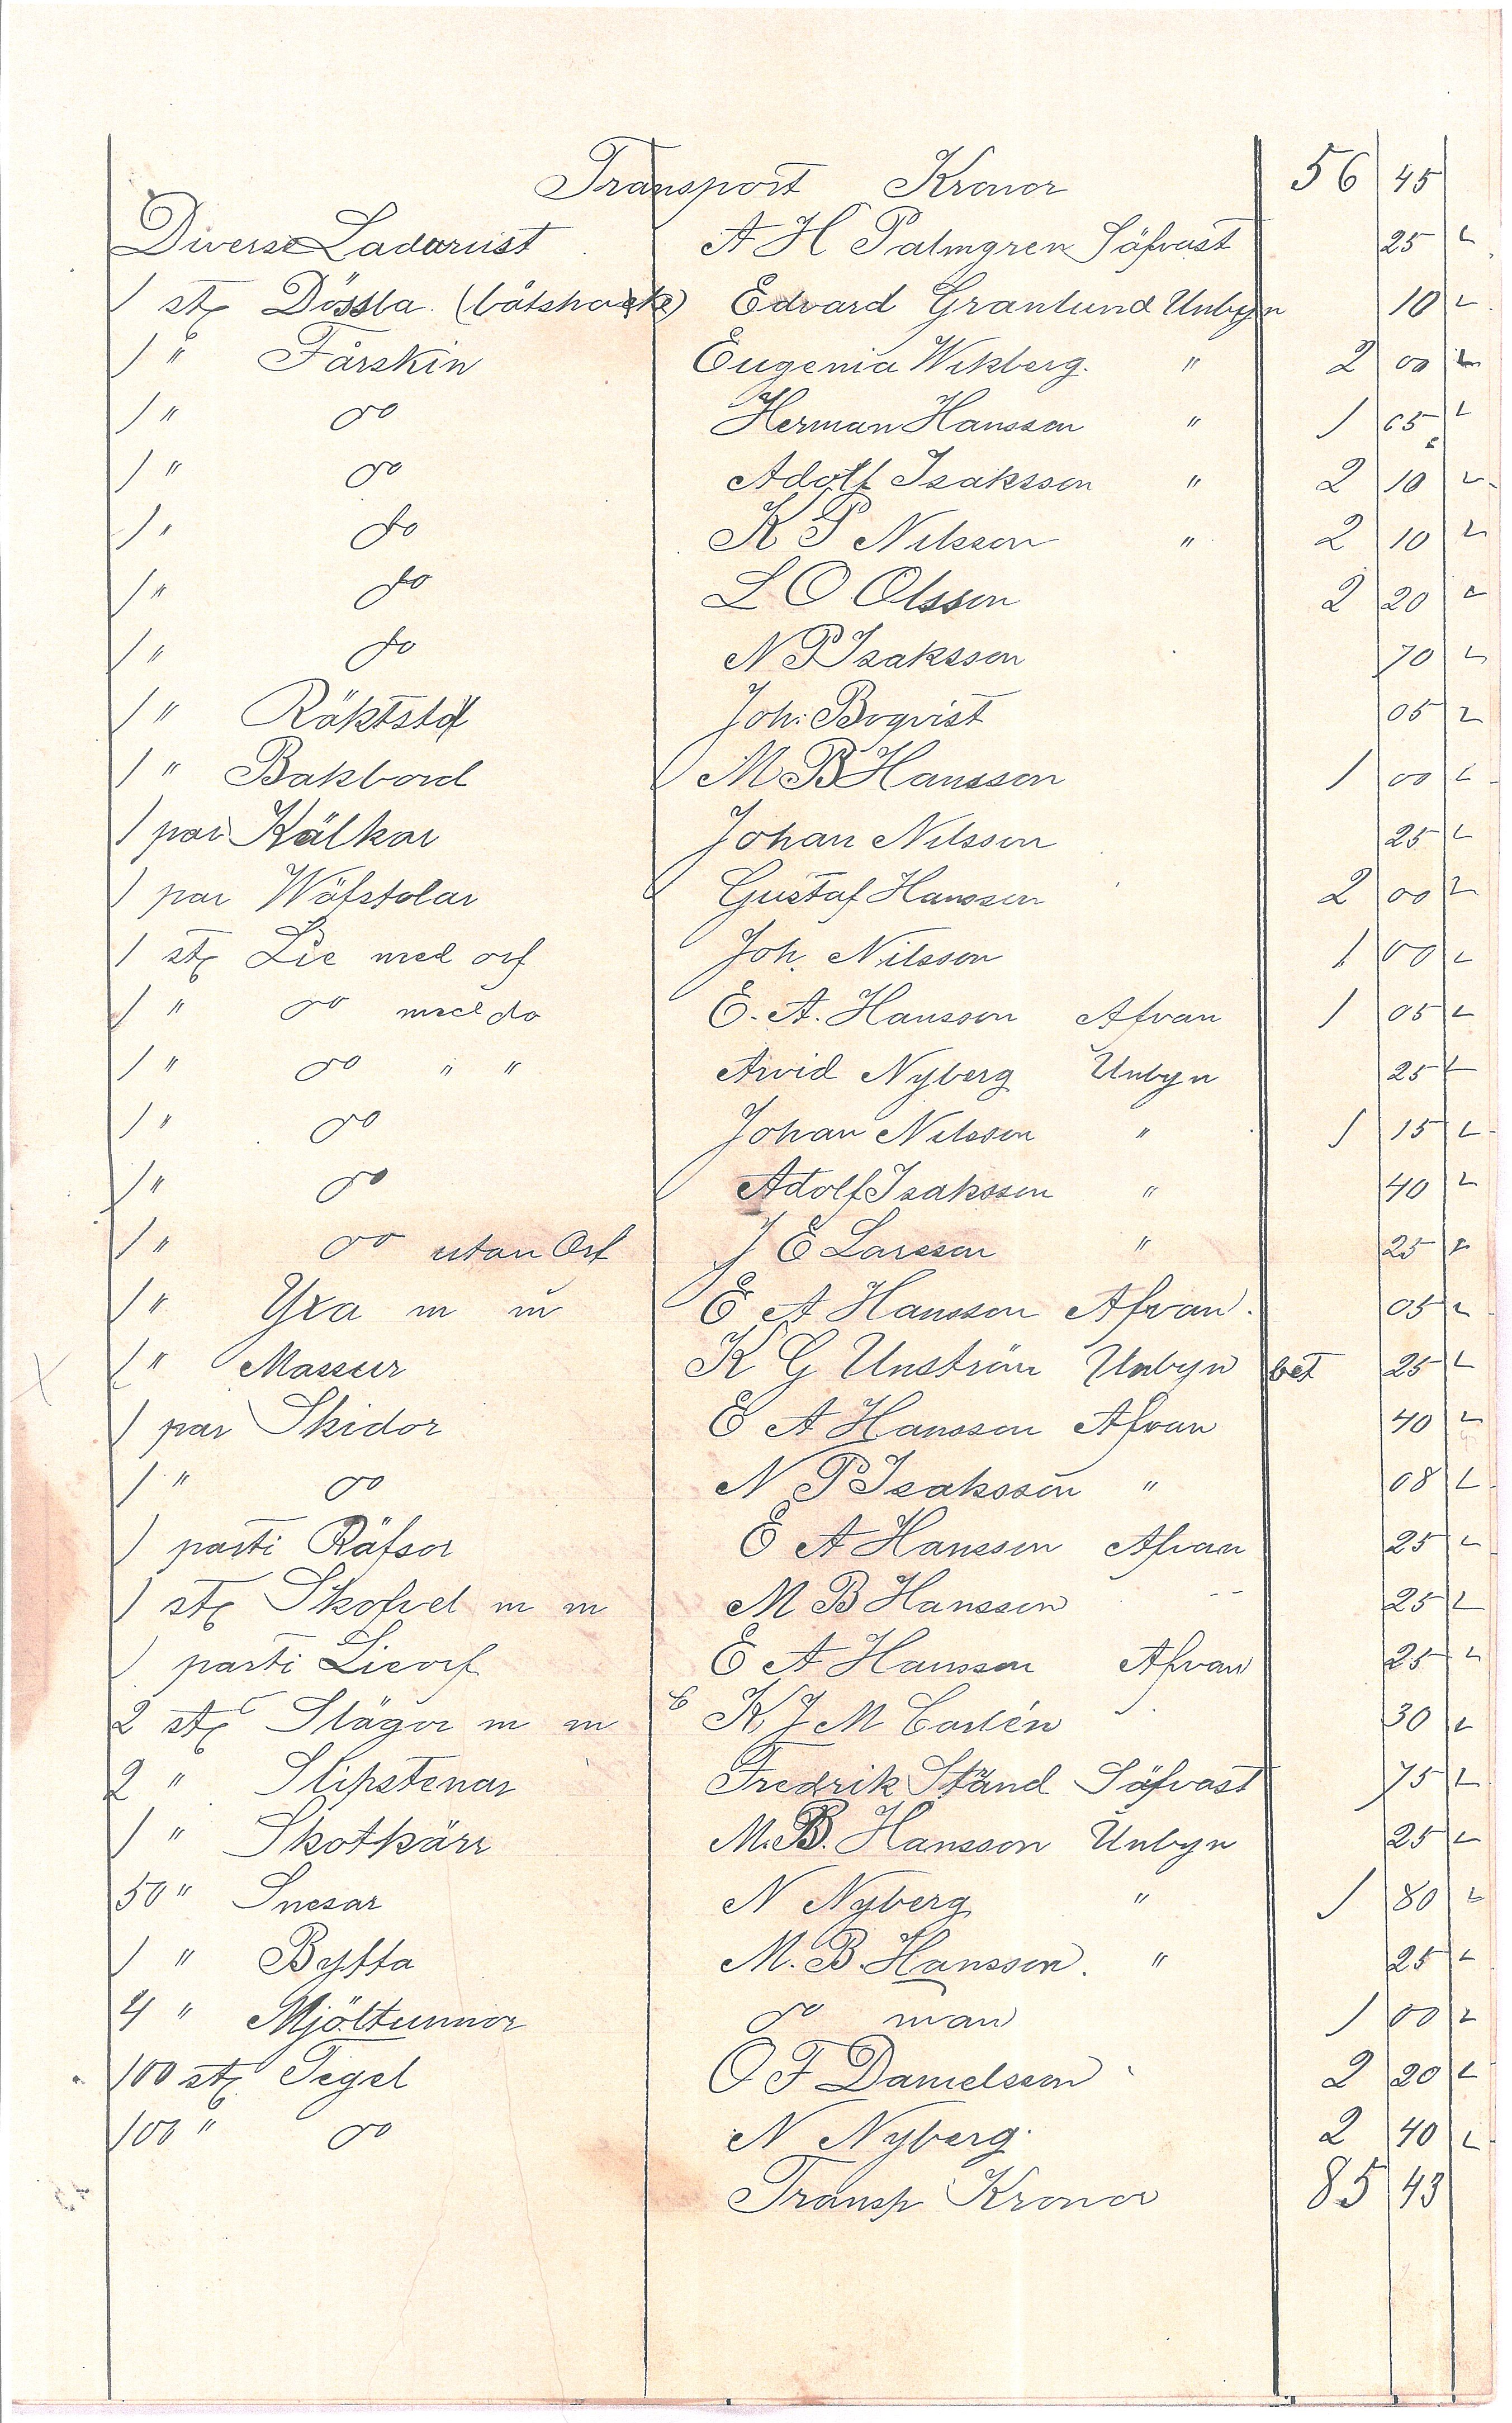 Transport Kronor 56 45
Diverse Ladurust A H Palmgren Säfvast 25
1 st Dössla (båtshacke) Edvard Granlund Unbyn 10
1 " Fårskin Eugenia Wikberg " 2 00
1 " do Herman Hansson " 1 65
1 " do Adolf Isaksson " 2 10
1 " do K P Nilsson " 2 10
1 " do L O Olsson 2 20
1 " do N P Isaksson 70
1 " Joh. Boqvist 05
1 " Bakbord M B Hansson 1 00
1 par Kälkar Johan Nilsson 25
1 par Wäfstolar Gustaf Hansson 2 00
1 st Lie med orf Joh. Nilsson 1 00
1 " do med do E. A. Hansson Afvan 1 05
1 " do " " Arvid Nyberg Unbyn 25
1 " do Johan Nilsson " 1 15
1 " do Adolf Isaksson " 40
1 " do utan Orf J E Larsson " 25
1 " Yxa m m E A Hansson Afvan. 05
1 " Massur K G Unström Unbyn bet 25
1 par Skidor E A Hansson Afvan 40
1 " do N P Isaksson " 08
1 parti Räfsor E A Hansson Afvan 25
1 st Skofvel m m M B Hansson 25
1 parti Lieorf E A Hansson Afvan 25
2 st Slägor m m K J M Carlén 30
2 " Slipstenar Fredrik Stånd Säfvast 75
1 " Skotkärr M. B. Hansson Unbyn 25
50 " Snesar N Nyberg " 1 80
1 " Bytta M. B. Hansson. " 25
4 " Mjöltunnor do man 1 00
100 st Tegel O F Danielsson 2 20
100 " do N Nyberg 2 40
Transp Kronor 85 43